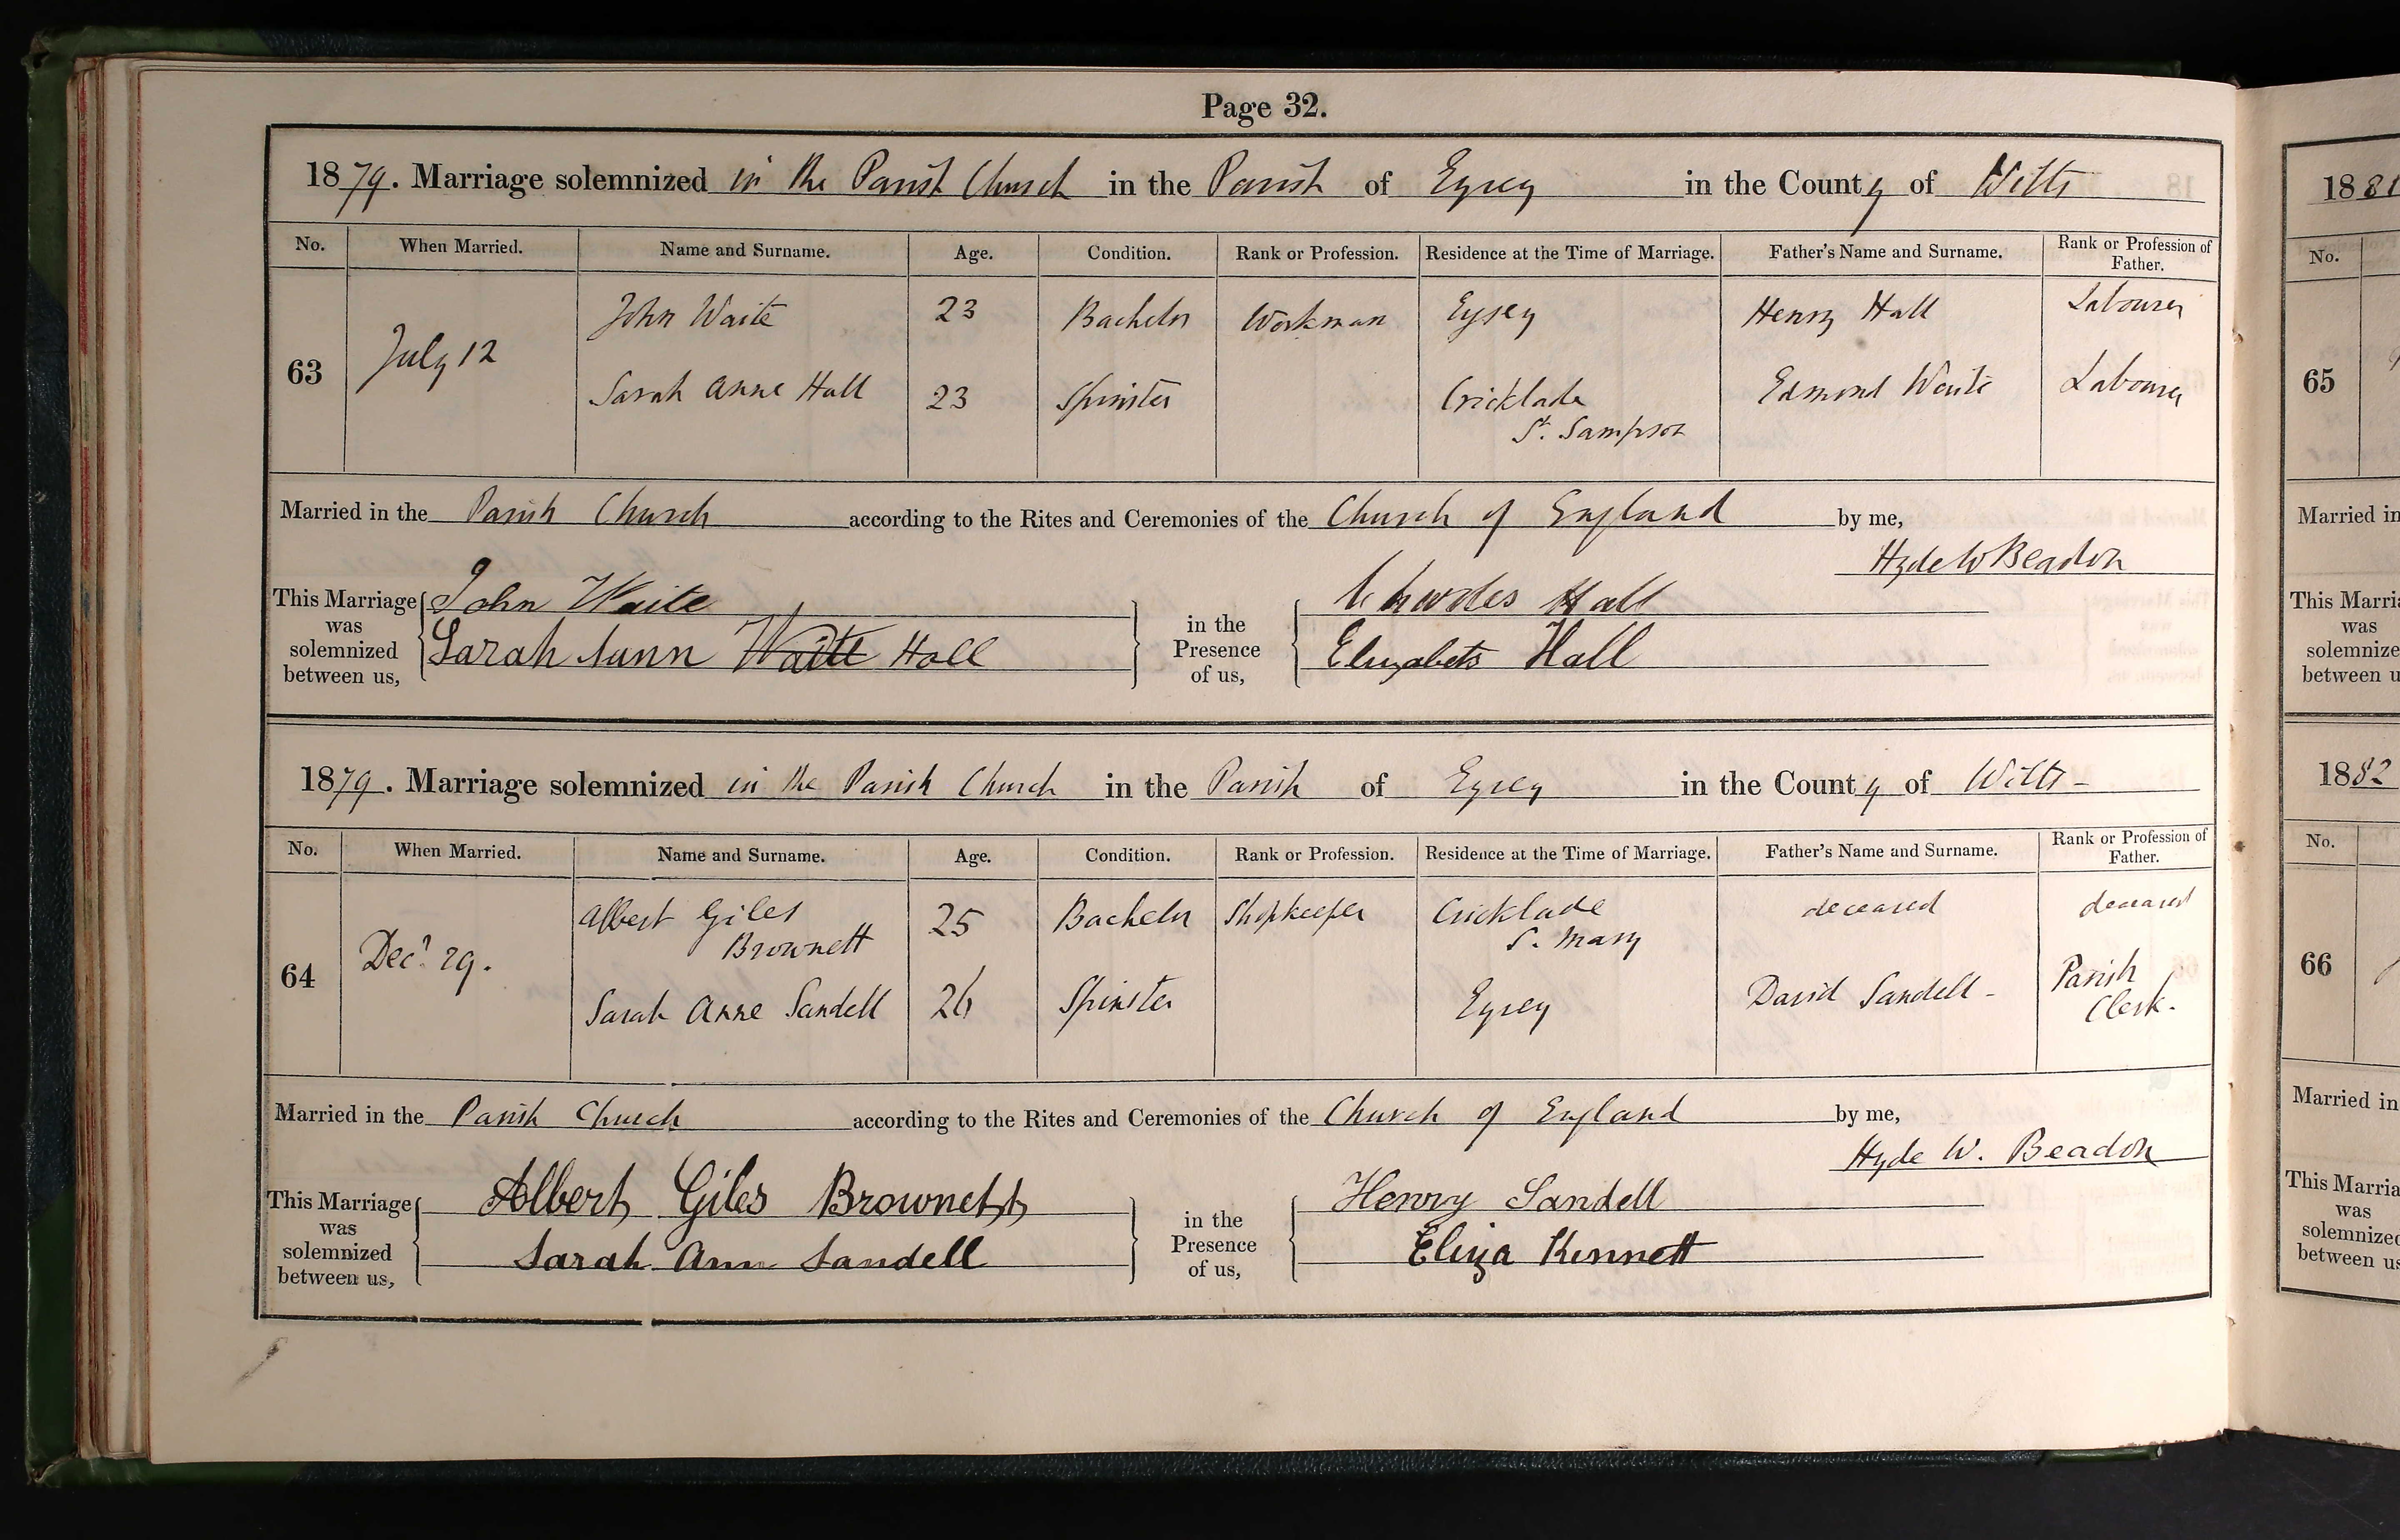 Page 32.
1879. Marriage solemnized in the Parish Church in the Parish of Eysey in the County of Wilts
No. When Married. Name and Surname. Age. Condition. Rank or Profession. Residence at the Time of Marriage. Father's Name and Surname. Rank or Profession of Father.
63 July 12 John Waite 23 Bachelor Workman Eysey Henry Hall Labourer
Sarah Anne Hall 23 Spinster Cricklade St. Sampson Edmond Waite Labourer
Married in the Parish Church according to the Rites and Ceremonies of the Church of England by me,
Hyde W Beadon
This Marriage was solemnized between us, John Waite in the Presence of us, Charles Hall
Sarah Aunn Waite Hall Elizabeth Hall
1879. Marriage solemnized in the Parish Church in the Parish of Eysey in the County of Wilts -
No. When Married. Name and Surname. Age. Condition. Rank or Profession. Residence at the Time of Marriage. Father's Name and Surname. Rank or Profession of Father.
64 Decr. 29. Albert Giles Brownett 25 Bachelor Shopkeeper Cricklade S. Mary deceased deceased
Sarah Anne Sandell 26 Spinster Eysey David Sandell - Parish Clerk.
Married in the Parish Church according to the Rites and Ceremonies of the Church of England by me,
Hyde W. Beadon
This Marriage was solemnized between us, Albert Giles Brownett in the Presence of us, Henry Sandell
Sarah Ann Sandell Eliza Kinnett
1881
No.
65
Married in
This Marria
was
solemnize
between u
1882
No.
66
Married in
This Marria
was
solemnized
between us